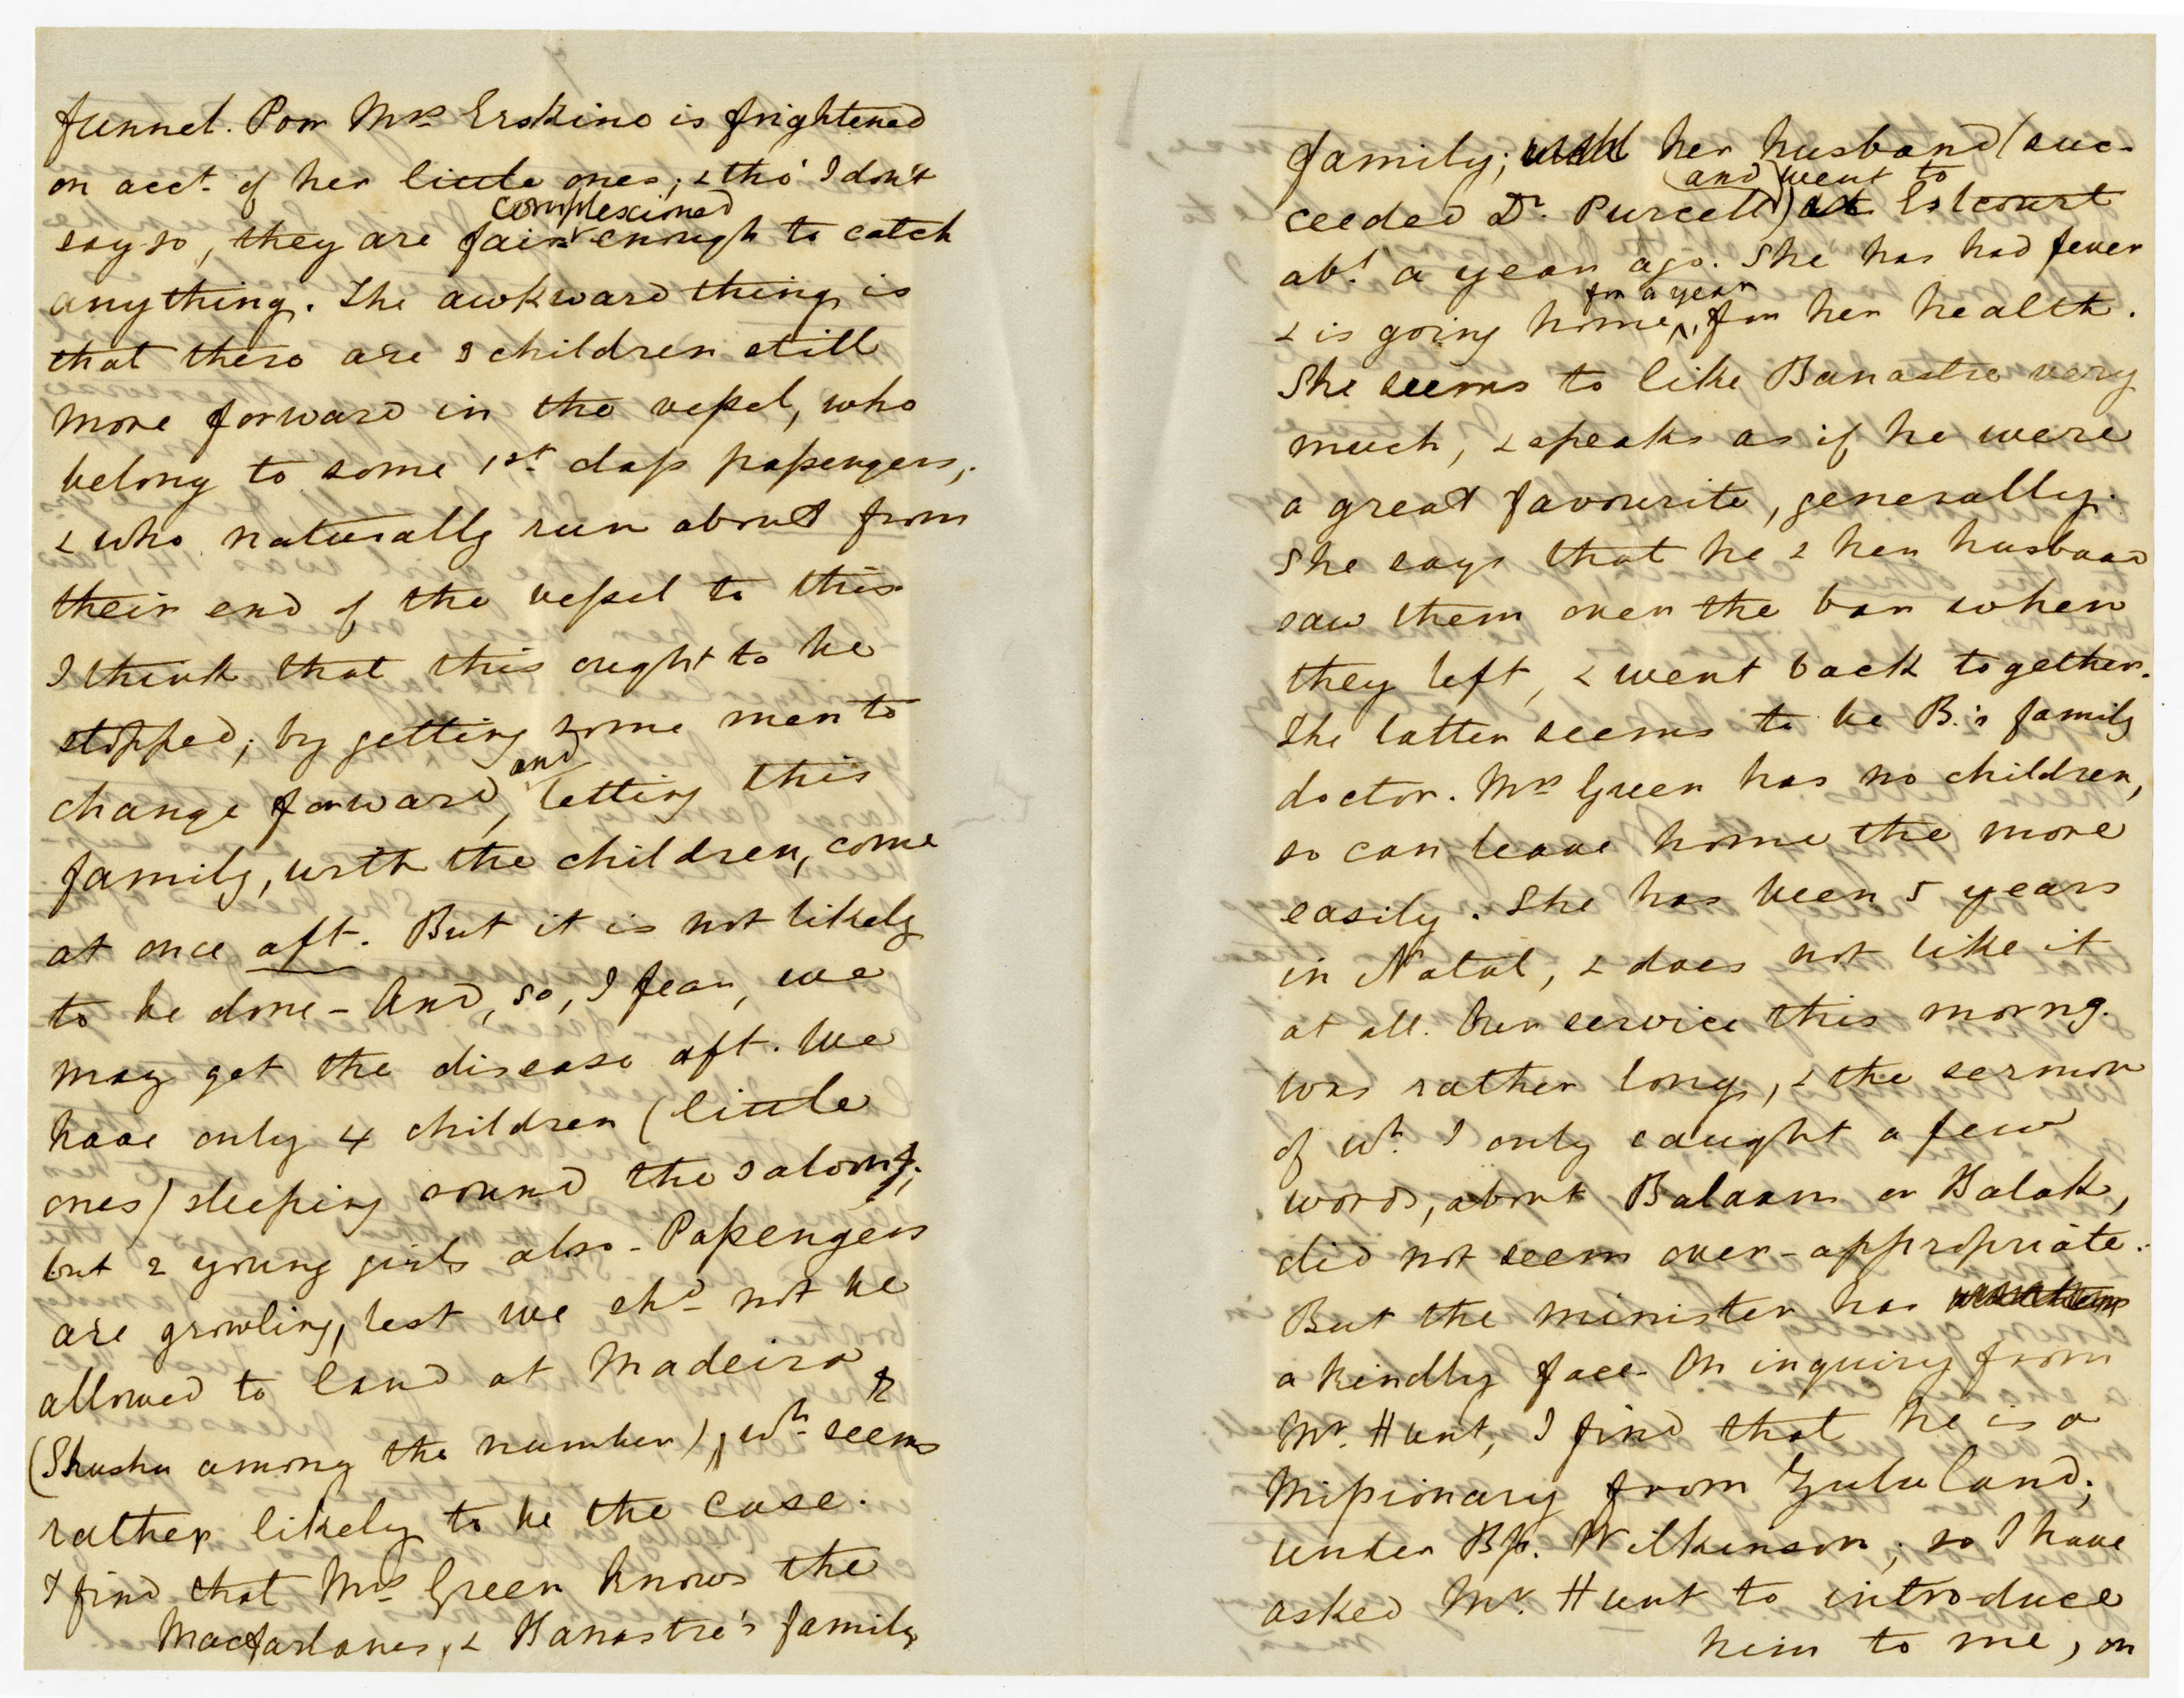 funnel. Poor Mrs Erskine is frightened
on acct. of her little ones; & tho' I don't
complexioned
say so, they are fair enough to catch
anything. The awkward thing is
that there are 3 children still
more forward in the vessel, who
belong to some 1st. class passengers,
& who naturally run about from
their end of the vessel to this.
I think that this ought to be
stopped; by getting some men to
and
change forward, letting this
family, with the children, come
at once aft. But it is not likely
to be done - And, so, I fear, we
may get the disease aft. We
have only 4 children (little
ones) sleeping round the saloon;
but 2 young girls also - Passengers
are growling, lest we shd. not be
allowed to land at Madeira
(Shusha among the number), wh. seems
rather likely to be the case.
I find that Mrs Green knows the
Macfarlanes, & Banastre's family
family; her husband (suc-
and went to
ceeded Dr. Purcell) Estcourt
abt. a year ago. She has had fever
for a year
& is going home, for her health.
She seems to like Banastre very
much, & speaks as if he were
a great favourite, generally.
She says that he & her husband
saw them over the bar when
they left, & went back together.
The latter seems to be B.'s family
doctor. Mrs Green has no children,
so can leave home the more
easily. She has been 5 years
in Natal, & does not like it
at all. Our service this morng.
was rather long, & the sermon
of wh. I only caught a few
words, about Balaam or Balak,
did not seem over-appropriate.
But the minister has
a kindly face - On inquiry from
Mr. Hunt, I find that he is a
Missionary from Zululand;
under Bp. Wilkinson; so I have
asked Mr. Hunt to introduce
him to me, on